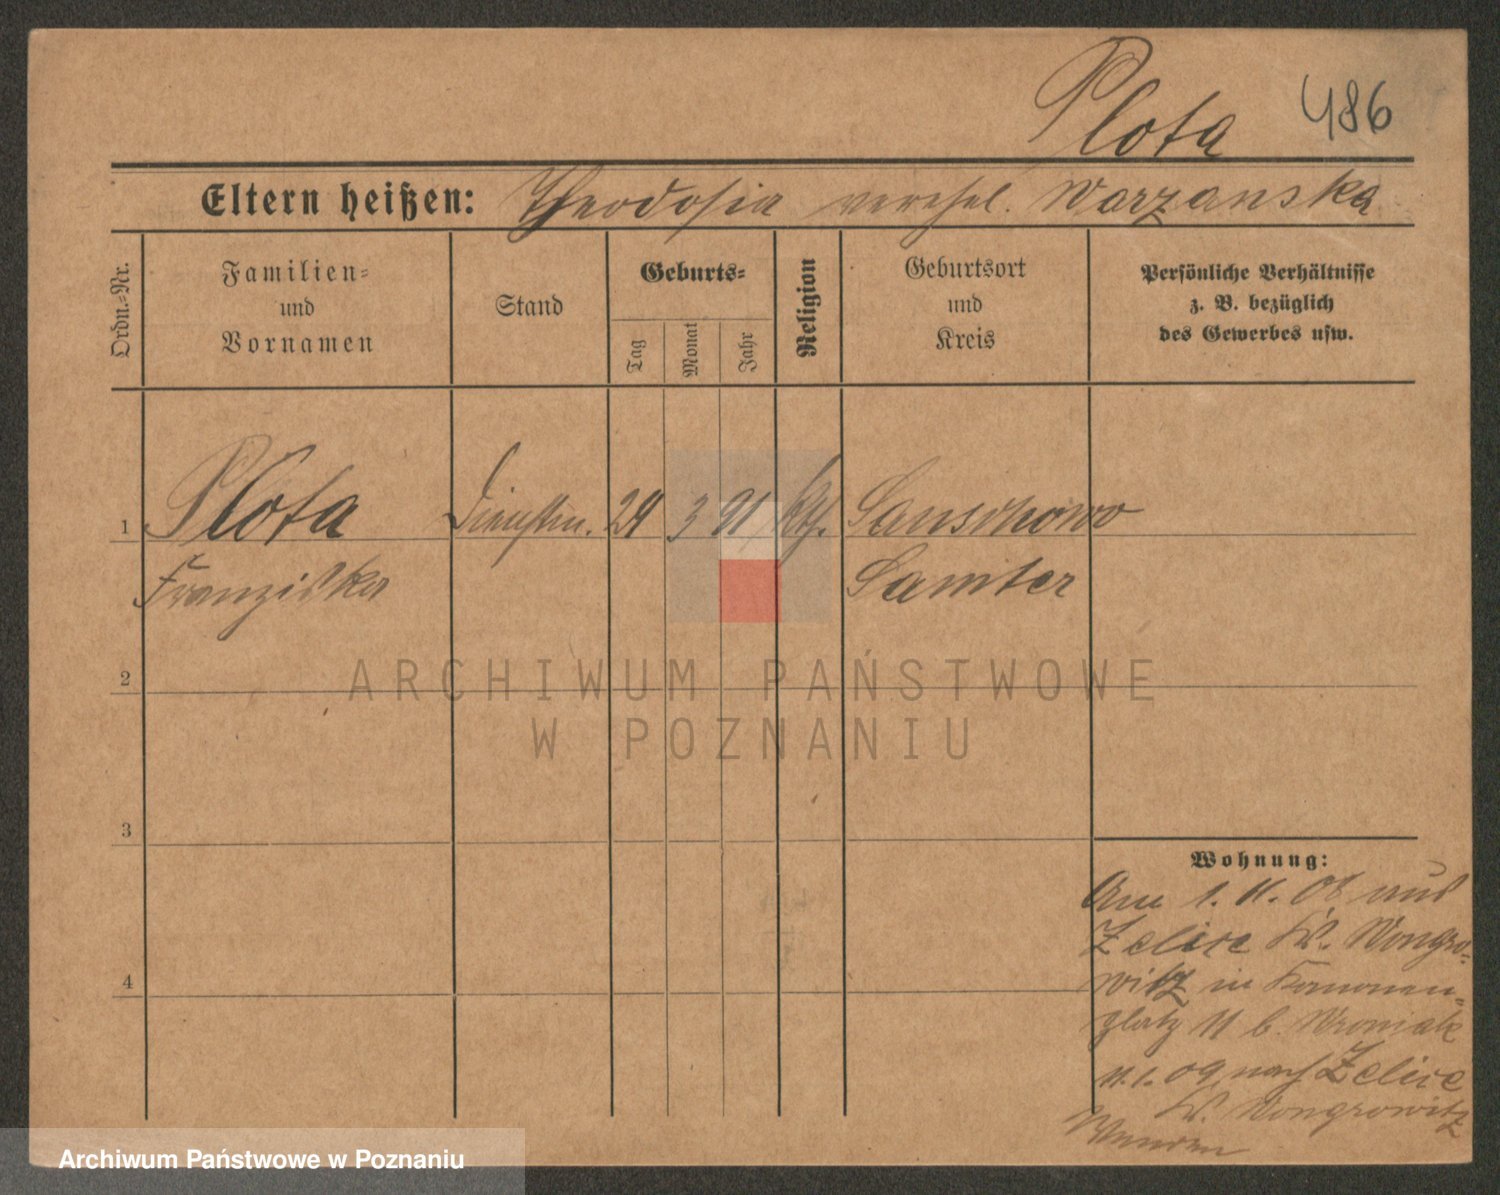 Plota 486
Eltern heißen: Theodosia verehel. Warzanska
Ordn.-Nr.
Familien-
und
Vornamen
Stand
Geburts-
Tag
Monat
Jahr
Religion
Geburtsort
und
Kreis
Persönliche Verhältnisse
z. B. bezüglich
des Gewerbes usw.
1 Plota Dienstm. 24 3 91 kth.
Franziska Samter
ARCHIWUM PAŃSTWOWE
W POZNANIU
2
3
4
Wohnung:
Am 1. 11. 08 aus
Zelice Kr. Wongro-
witz in
platz 11 b. Wroniak
11.1.09 nach Zelice
Kr. Wongrowitz
Archiwum Państwowe w Poznaniu